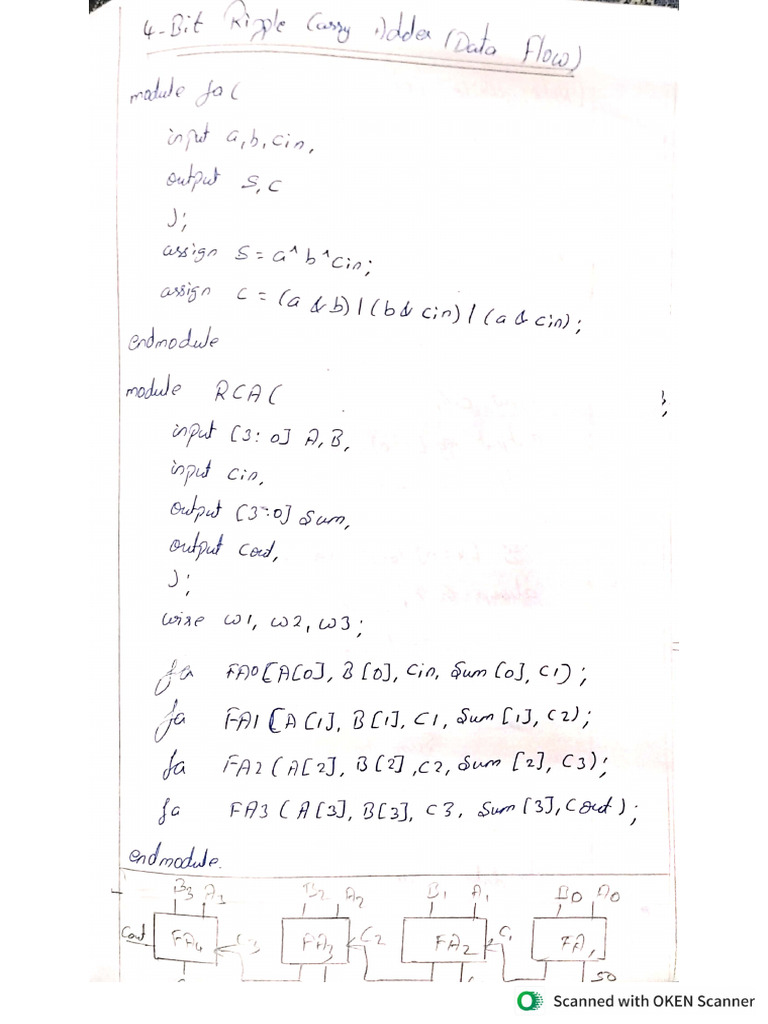 4-Bit Ripple Carry Adder (Data Flow)
module fa(
input a,b,cin,
output s,c
);
assign s = a^b^cin;
assign c = (a & b) | (b & cin) | (a & cin);
endmodule
module RCA(
input [3:0] A,B,
input cin,
output [3:0] sum,
output cout,
);
wire w1, w2, w3;
fa FA0[A[0], B[0], cin, sum[0], c1);
fa FA1[A[1], B[1], c1, sum[1], c2);
fa FA2(A[2], B[2], c2, sum[2], c3);
fa FA3(A[3], B[3], c3, sum[3], cout);
endmodule.
B3 A3 B2 A2 B1 A1 B0 A0
Cout FA4 C3 FA3 C2 FA2 C1 FA1
S0
Scanned with OKEN Scanner